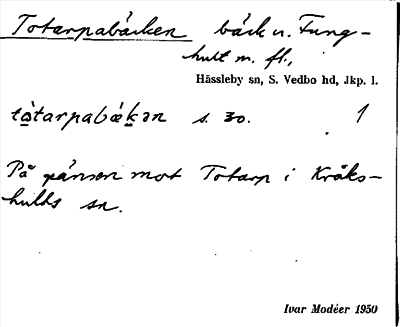 Totarpabäcken bäck u. Fung-
hult m. fl.,
Hässleby sn, S. Vedbo hd, Jkp. l.
tòtarpabäkən s. 30. 1
På gränsen mot Totarp i Kråks-
hults sn.
Ivar Modéer 1950